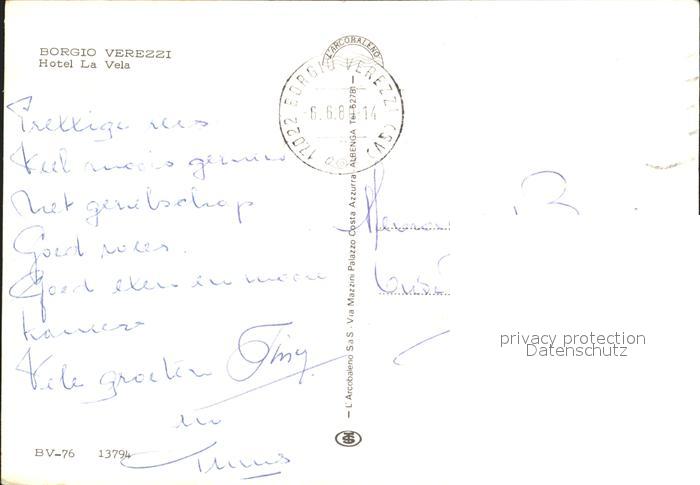 BORGIO VEREZZI
Hotel La Vela
Prettige reis
Veel moois gezien
Met gezelschap
Goed reis.
Goed eten en mooie
kamers
Vele groeten Finy
en
L'ARCOBALENO
17022 BORGIO VEREZZI (SV)
14
— L'Arcobaleno S a S - Via Mazzini Palazzo Costa Azzurra - ALBENGA Tel 52781 —
privacy protection
Datenschutz
BV-76 13794